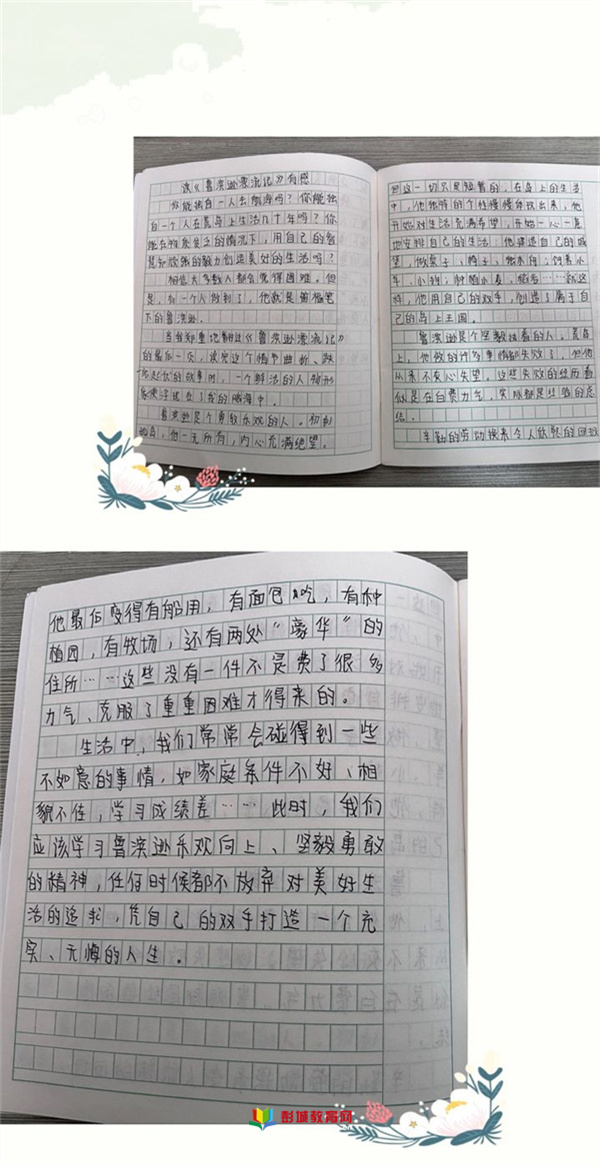 读《鲁滨逊漂流记》有感
你能独自一人去航海吗?你能独
自一个人在荒岛上生活几十年吗?你
能在物质贫乏的情况下,用自己的智
慧和顽强的毅力创造美好的生活吗?
相信大多数人都会觉得困难。但
是,有一个人做到了,他就是笛福笔
下的鲁滨逊。
当我郑重地翻过《鲁滨逊漂流记》
的最后一页,读完这个情节曲折、跌
宕起伏的故事时,一个鲜活的人物形
象便浮现在了我的脑海中。
鲁滨逊是个勇敢乐观的人。初到
荒岛,他一无所有,内心充满绝望。
但这一切只是短暂的,在岛上的生活
中,他独特的个性慢慢体现出来,他
开始对生活充满希望,开始一心一意
地安排自己的生活:他建造自己的城
堡,做桌子、椅子,做木筏;饲养小
羊、小狗;种植小麦、稻子……就这
样,他用自己的双手,创造了属于自
己的岛上王国。
鲁滨逊是个坚毅执着的人,荒岛
上,他做的许多事情都失败了,但他
从来不灰心失望。这些失败的经历看
似是在白费力气,实际都是经验的总
结。
辛勤的劳动换来令人欣慰的回报
他最后变得有船用,有面包吃,有种
植园,有牧场,还有两处“豪华”的
住所……这些没有一件不是费了很多
力气、克服了重重困难才得来的。
生活中,我们常常会碰得到一些
不如意的事情,如家庭条件不好、相
貌不佳,学习成绩差……此时,我们
应该学习鲁滨逊乐观向上、坚毅勇敢
的精神,任何时候都不放弃对美好生
活的追求,凭自己的双手打造一个充
实、无悔的人生。
彭城教育网